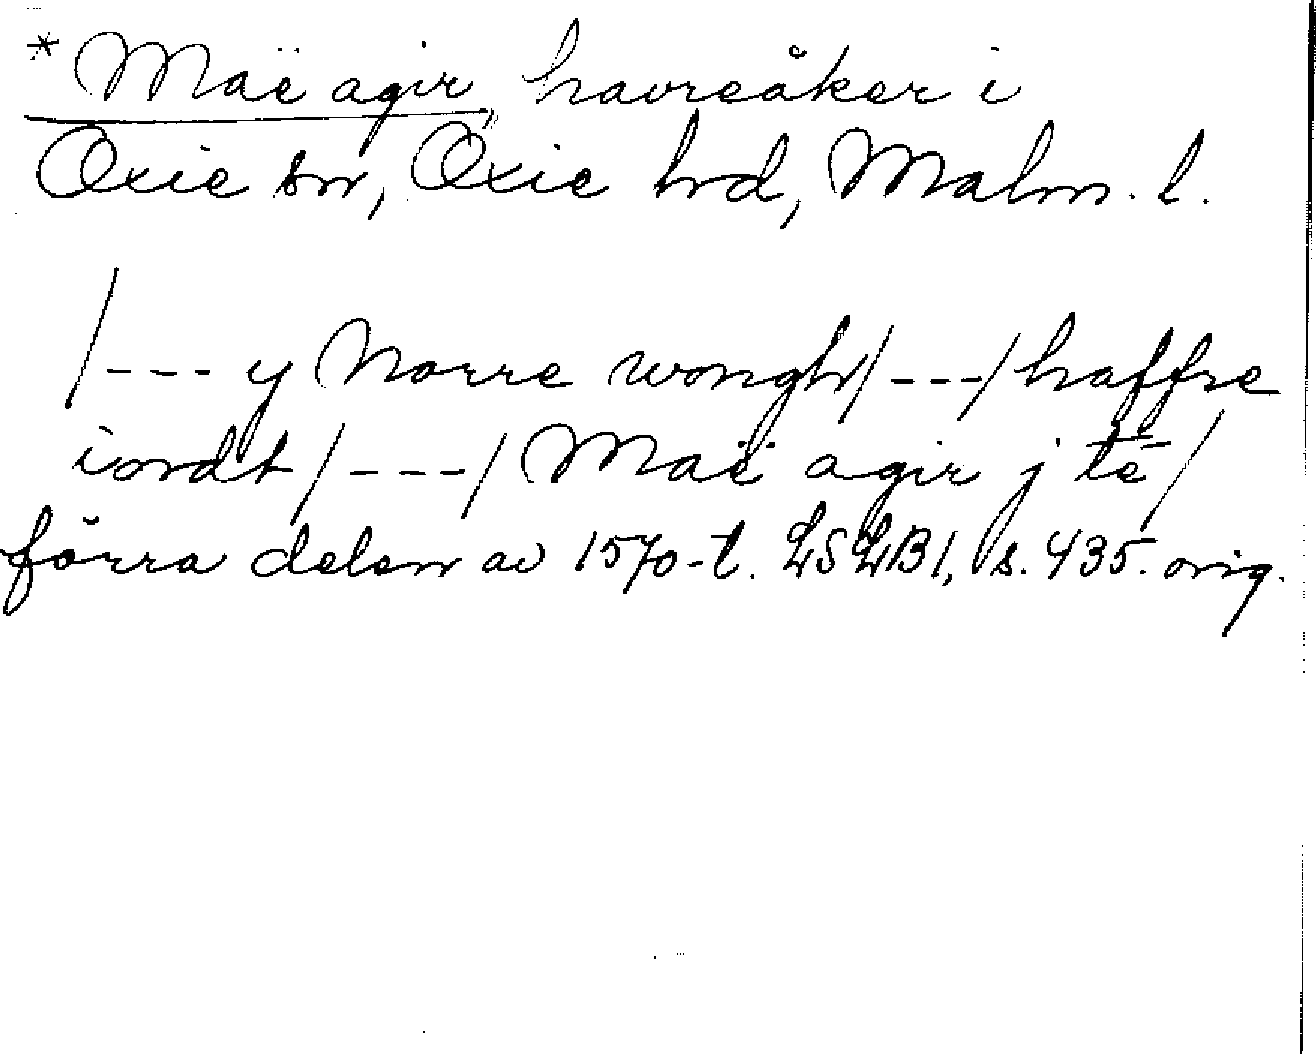 *Maë agir, havreåker i
Oxie sn, Oxie hrd, Malm. l.
/--- y Norre wongh/---/haffre
iordt/---/Maë agir j té/
förra delen av 1570-t. LSLB1, s. 435. orig.